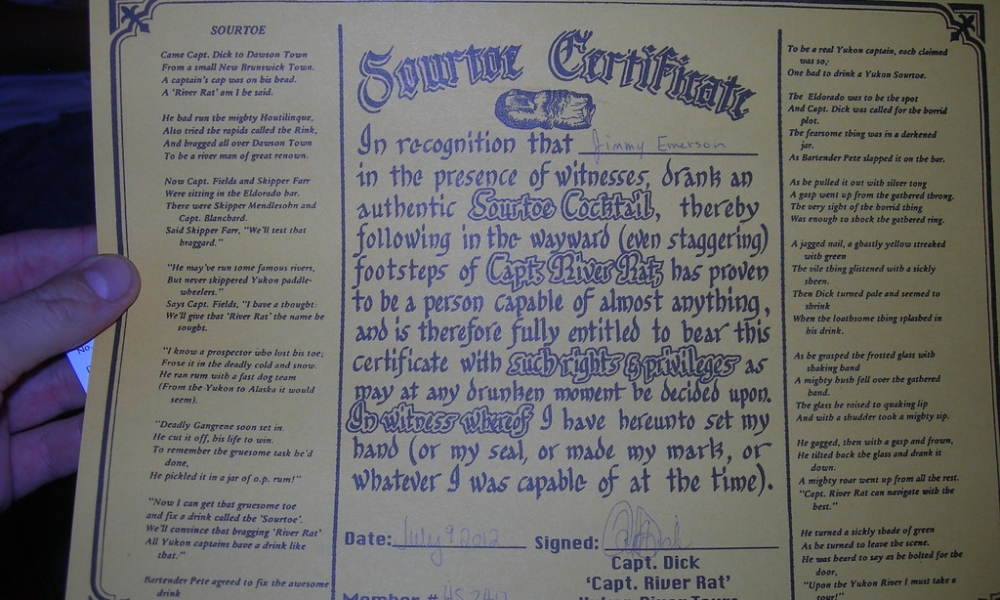 SOURTOE
Came Capt. Dick to Dawson Town
From a small New Brunswick Town.
A captain's cap was on his head.
A 'River Rat' am I he said.
He had run the mighty Houtilinque,
Also tried the rapids called the Rink,
And bragged all over Dawson Town
To be a river man of great renown.
Now Capt. Fields and Skipper Farr
Were sitting in the Eldorado bar.
There were Skipper Mendlesohn and
Capt. Blanchard.
Said Skipper Farr, "We'll test that
braggard."
"He may've run some famous rivers,
But never skippered Yukon paddle-
wheelers."
Says Capt. Fields, "I have a thought:
We'll give that 'River Rat' the name he
sought.
"I know a prospector who lost his toe;
Froze it in the deadly cold and snow.
He ran rum with a fast dog team
(From the Yukon to Alaska it would
seem).
"Deadly Gangrene soon set in.
He cut it off, his life to win.
To remember the gruesome task he'd
done,
He pickled it in a jar of o.p. rum!"
"Now I can get that gruesome toe
and fix a drink called the 'Sourtoe'.
We'll convince that bragging 'River Rat'
All Yukon captains have a drink like
that."
Bartender Pete agreed to fix the awesome
drink
Sourtoe Certificate
In recognition that Jimmy Emerson
in the presence of witnesses, drank an
authentic Sourtoe Cocktail, thereby
following in the wayward (even staggering)
footsteps of Capt. River Rat, has proven
to be a person capable of almost anything,
and is therefore fully entitled to bear this
certificate with such rights & privileges as
may at any drunken moment be decided upon.
In witness whereof I have hereunto set my
hand (or my seal, or made my mark, or
whatever I was capable of at the time).
Date: July 9 2012 Signed:
Capt. Dick
'Capt. River Rat'
Yukon River Tours
Member #
To be a real Yukon captain, each claimed
was so,
One had to drink a Yukon Sourtoe.
The Eldorado was to be the spot
And Capt. Dick was called for the horrid
plot.
The fearsome thing was in a darkened
jar.
As Bartender Pete slapped it on the bar.
As he pulled it out with silver tong
A gasp went up from the gathered throng.
The very sight of the horrid thing
Was enough to shock the gathered ring.
A jagged nail, a ghastly yellow streaked
with green
The vile thing glistened with a sickly
sheen.
Then Dick turned pale and seemed to
shrink
When the loathsome thing splashed in
his drink.
As he grasped the frosted glass with
shaking hand
A mighty hush fell over the gathered
band.
The glass he raised to quaking lip
And with a shudder took a mighty sip.
He gagged, then with a gasp and frown,
He tilted back the glass and drank it
down.
A mighty roar went up from all the rest.
"Capt. River Rat can navigate with the
best."
He turned a sickly shade of green
As he turned to leave the scene.
He was heard to say as he bolted for the
door,
"Upon the Yukon River I must take a
tour!"
No.